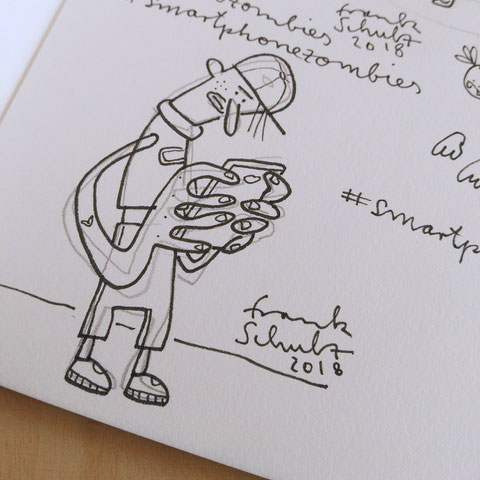 zombies
frank
Schulz
2018
#smartphonezombies
#smartp
frank
Schulz
2018